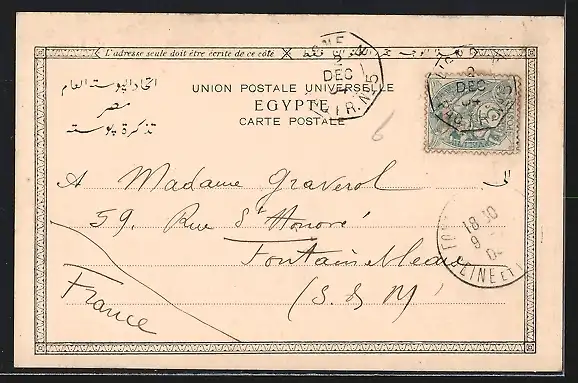 L'adresse seule doit être écrite de ce côté
اتحاد البوستة العام
مصر
تذكرة بوسته
UNION POSTALE UNIVERSELLE
EGYPTE
CARTE POSTALE
2
DEC
Nº5
2
DEC
04
6
A Madame Graverol
الى
59. Rue St Honoré
Fontainebleau
(S. & M)
France
18 30
9
SEINE ET